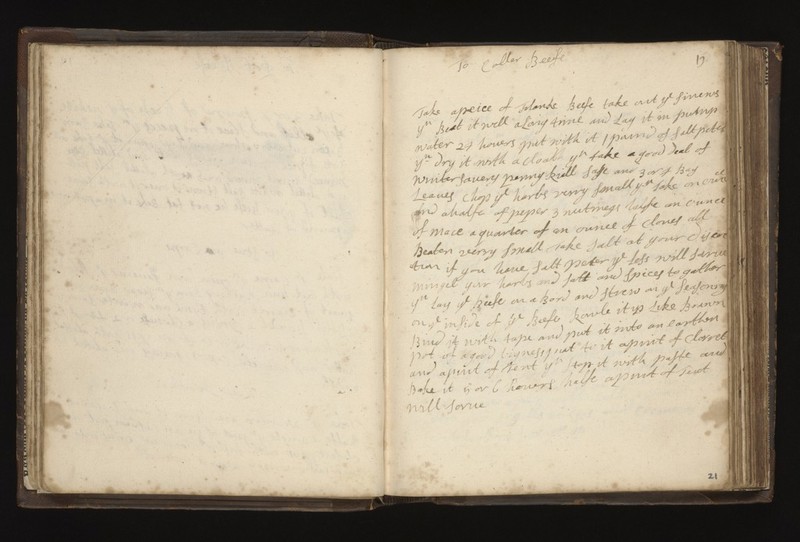 To Collar Beefe
19
Take a peice of Beefe take out ye sinews
yn Beat it well alonge time and Lay it in pump
water 24 howers put with it 1 pound of salt peter
yn dry it with a cloath yn take a good deal of
Winter savery penny Riall sage and 3 or 4 Bay
Leaves Chop ye harbs verry small yn take an ounce
and a halfe of peper 3 nutmegs halfe an ounce
of mace a quarter of an ounce of Cloves all
Beaten verry small take salt at your discre
tion if you have salt peter ye less will sarve
mingel your harbs and salt and spices to gathar
yn lay ye Beefe on a Bord and strew on ye seasoning
on ye inside of ye Beefe Rowle it up Like Brawn
Bind it with tape and put it into an earthen
pot of a good bignes put to it a pint of Claret
and a pint of Tent yn stop it with paste and
Bake it 5 or 6 howers halfe a pint of Tent
will sarve
21